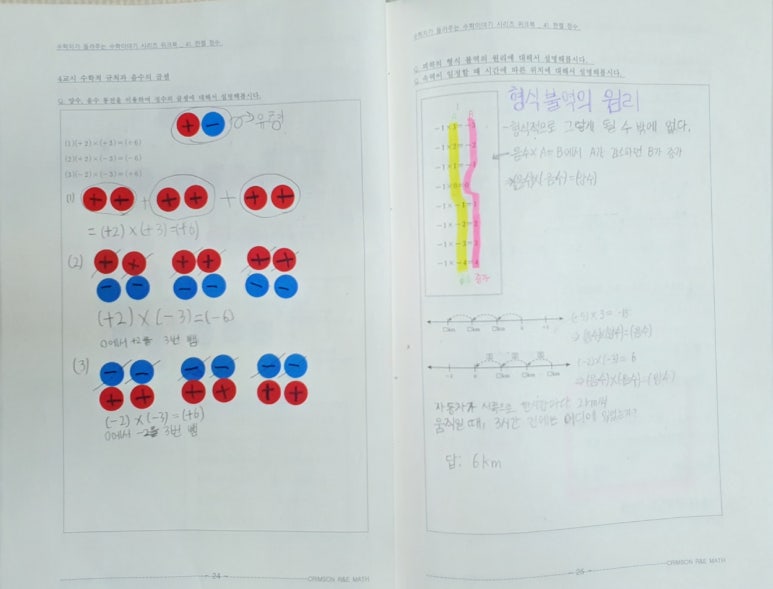 수학자가 들려주는 수학이야기 시리즈 워크북 41 한켈 정수
4교시 수학적 규칙과 음수의 곱셈
Q. 양수, 음수 동전을 이용하여 정수의 곱셈에 대해서 설명해봅시다.
(1)(+2)×(+3)=(+6)
(2)(+2)×(-3)=(-6)
(3)(-2)×(-3)=(+6)
+ −
(1) + + + + + + + +
= (+2) × (+3) = (+6)
(2) + + + + + +
− − − − − −
(+2) × (−3) = (−6)
0에서 +2를 3번 뺌
(3) − − − − − −
+ + + + + +
(−2) × (−3) = (+6)
0에서 −2를 3번 뺌
24
CRIMSON R&E MATH
수학자가 들려주는 수학이야기 시리즈 워크북 41 한켈 정수
Q. 형식 불역의 원리에 대해서 설명해봅시다.
Q. 속력이 일정할 때 시간에 따른 위치에 대해서 설명해봅시다.
형식불역의 원리
A B
−1 × 3 = −3
−1 × 2 = −2
−1 × 1 = −1
−1 × 0 = 0
−1 × −1 = 1
−1 × −2 = 2
−1 × −3 = 3
−1 × −4 = 4
감소 증가
−형식적으로 그렇게 될 수 밖에 없다.
음수× A = B에서 A가 감소하면 B가 증가
⇒(음수)×(음수)=(양수)
(−5)×3 = −15
⇒(음수)×(양수)=(음수)
(−2)×(−3) = 6
⇒(음수)×(음수)=(양수)
자동차가 서쪽으로 한시간마다 2km씩
움직일 때, 3시간 전에는 어디에 있었는가?
답: 6km
25
CRIMSON R&E MATH